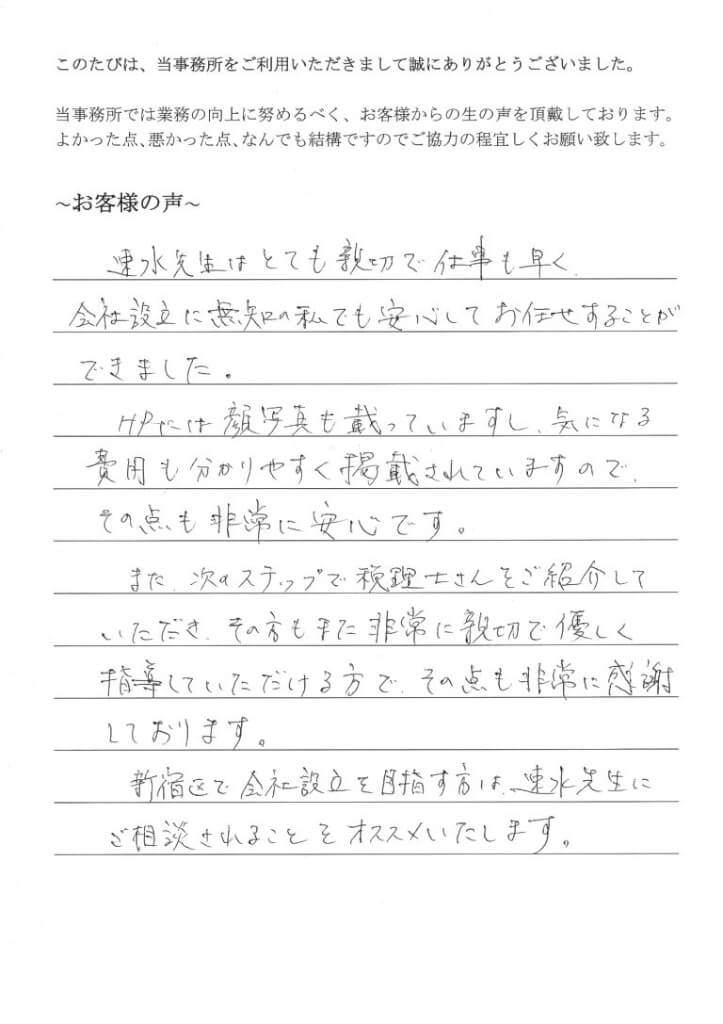 このたびは、当事務所をご利用いただきまして誠にありがとうございました。
当事務所では業務の向上に努めるべく、お客様からの生の声を頂戴しております。
よかった点、悪かった点、なんでも結構ですのでご協力の程宜しくお願い致します。
~お客様の声~
速水先生はとても親切で仕事も早く、
会社設立に無知の私でも安心してお任せすることが
できました。
HPには顔写真も載っていますし、気になる
費用も分かりやすく掲載されていますので、
その点も非常に安心です。
また、次のステップで税理士さんをご紹介して
いただき、その方もまた非常に親切で優しく
指導していただける方で、その点も非常に感謝
しております。
新宿区で会社設立を目指す方は、速水先生に
ご相談されることをオススメいたします。